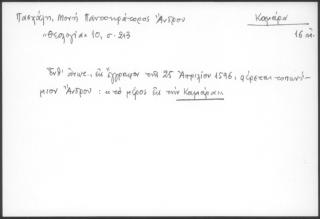 Πασχάλη, Μονή Παντοκράτορος Ἄνδρου Καμάρα
«Θεολογία» 10, σ. 213 16 αἰ.
Ἐνθ' ἀνωτ., ἐν ἐγγράφῳ τῆς 25 Ἀπριλίου 1596, φέρεται τοπωνύ-
μιον Ἄνδρου: «τὸ μέρος εἰς τὴν Καμάραν».